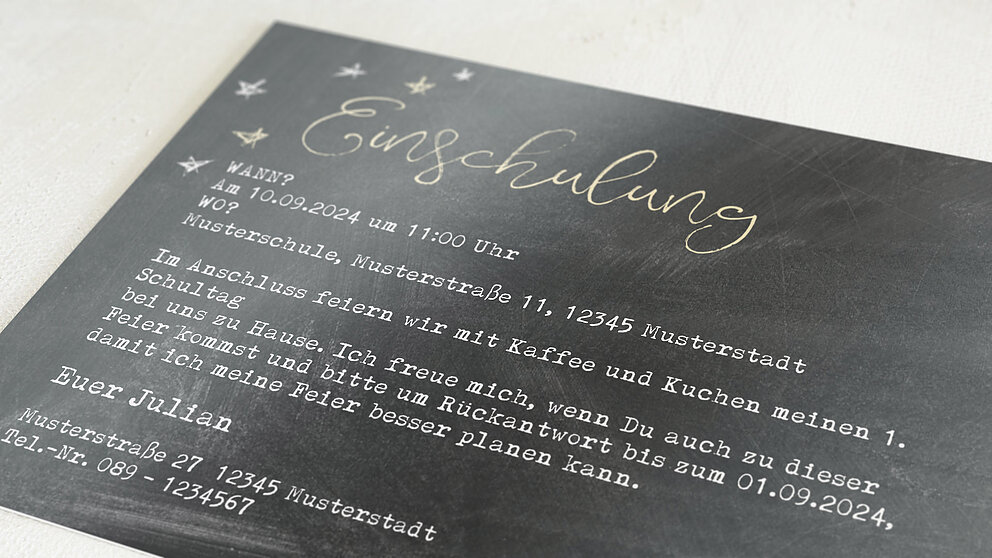 Einschulung
WANN?
Am 10.09.2024 um 11:00 Uhr
WO?
Musterschule, Musterstraße 11, 12345 Musterstadt
Im Anschluss feiern wir mit Kaffee und Kuchen meinen 1.
Schultag
bei uns zu Hause. Ich freue mich, wenn Du auch zu dieser
Feier kommst und bitte um Rückantwort bis zum 01.09.2024,
damit ich meine Feier besser planen kann.
Euer Julian
Musterstraße 27 12345 Musterstadt
Tel.-Nr. 089 - 1234567